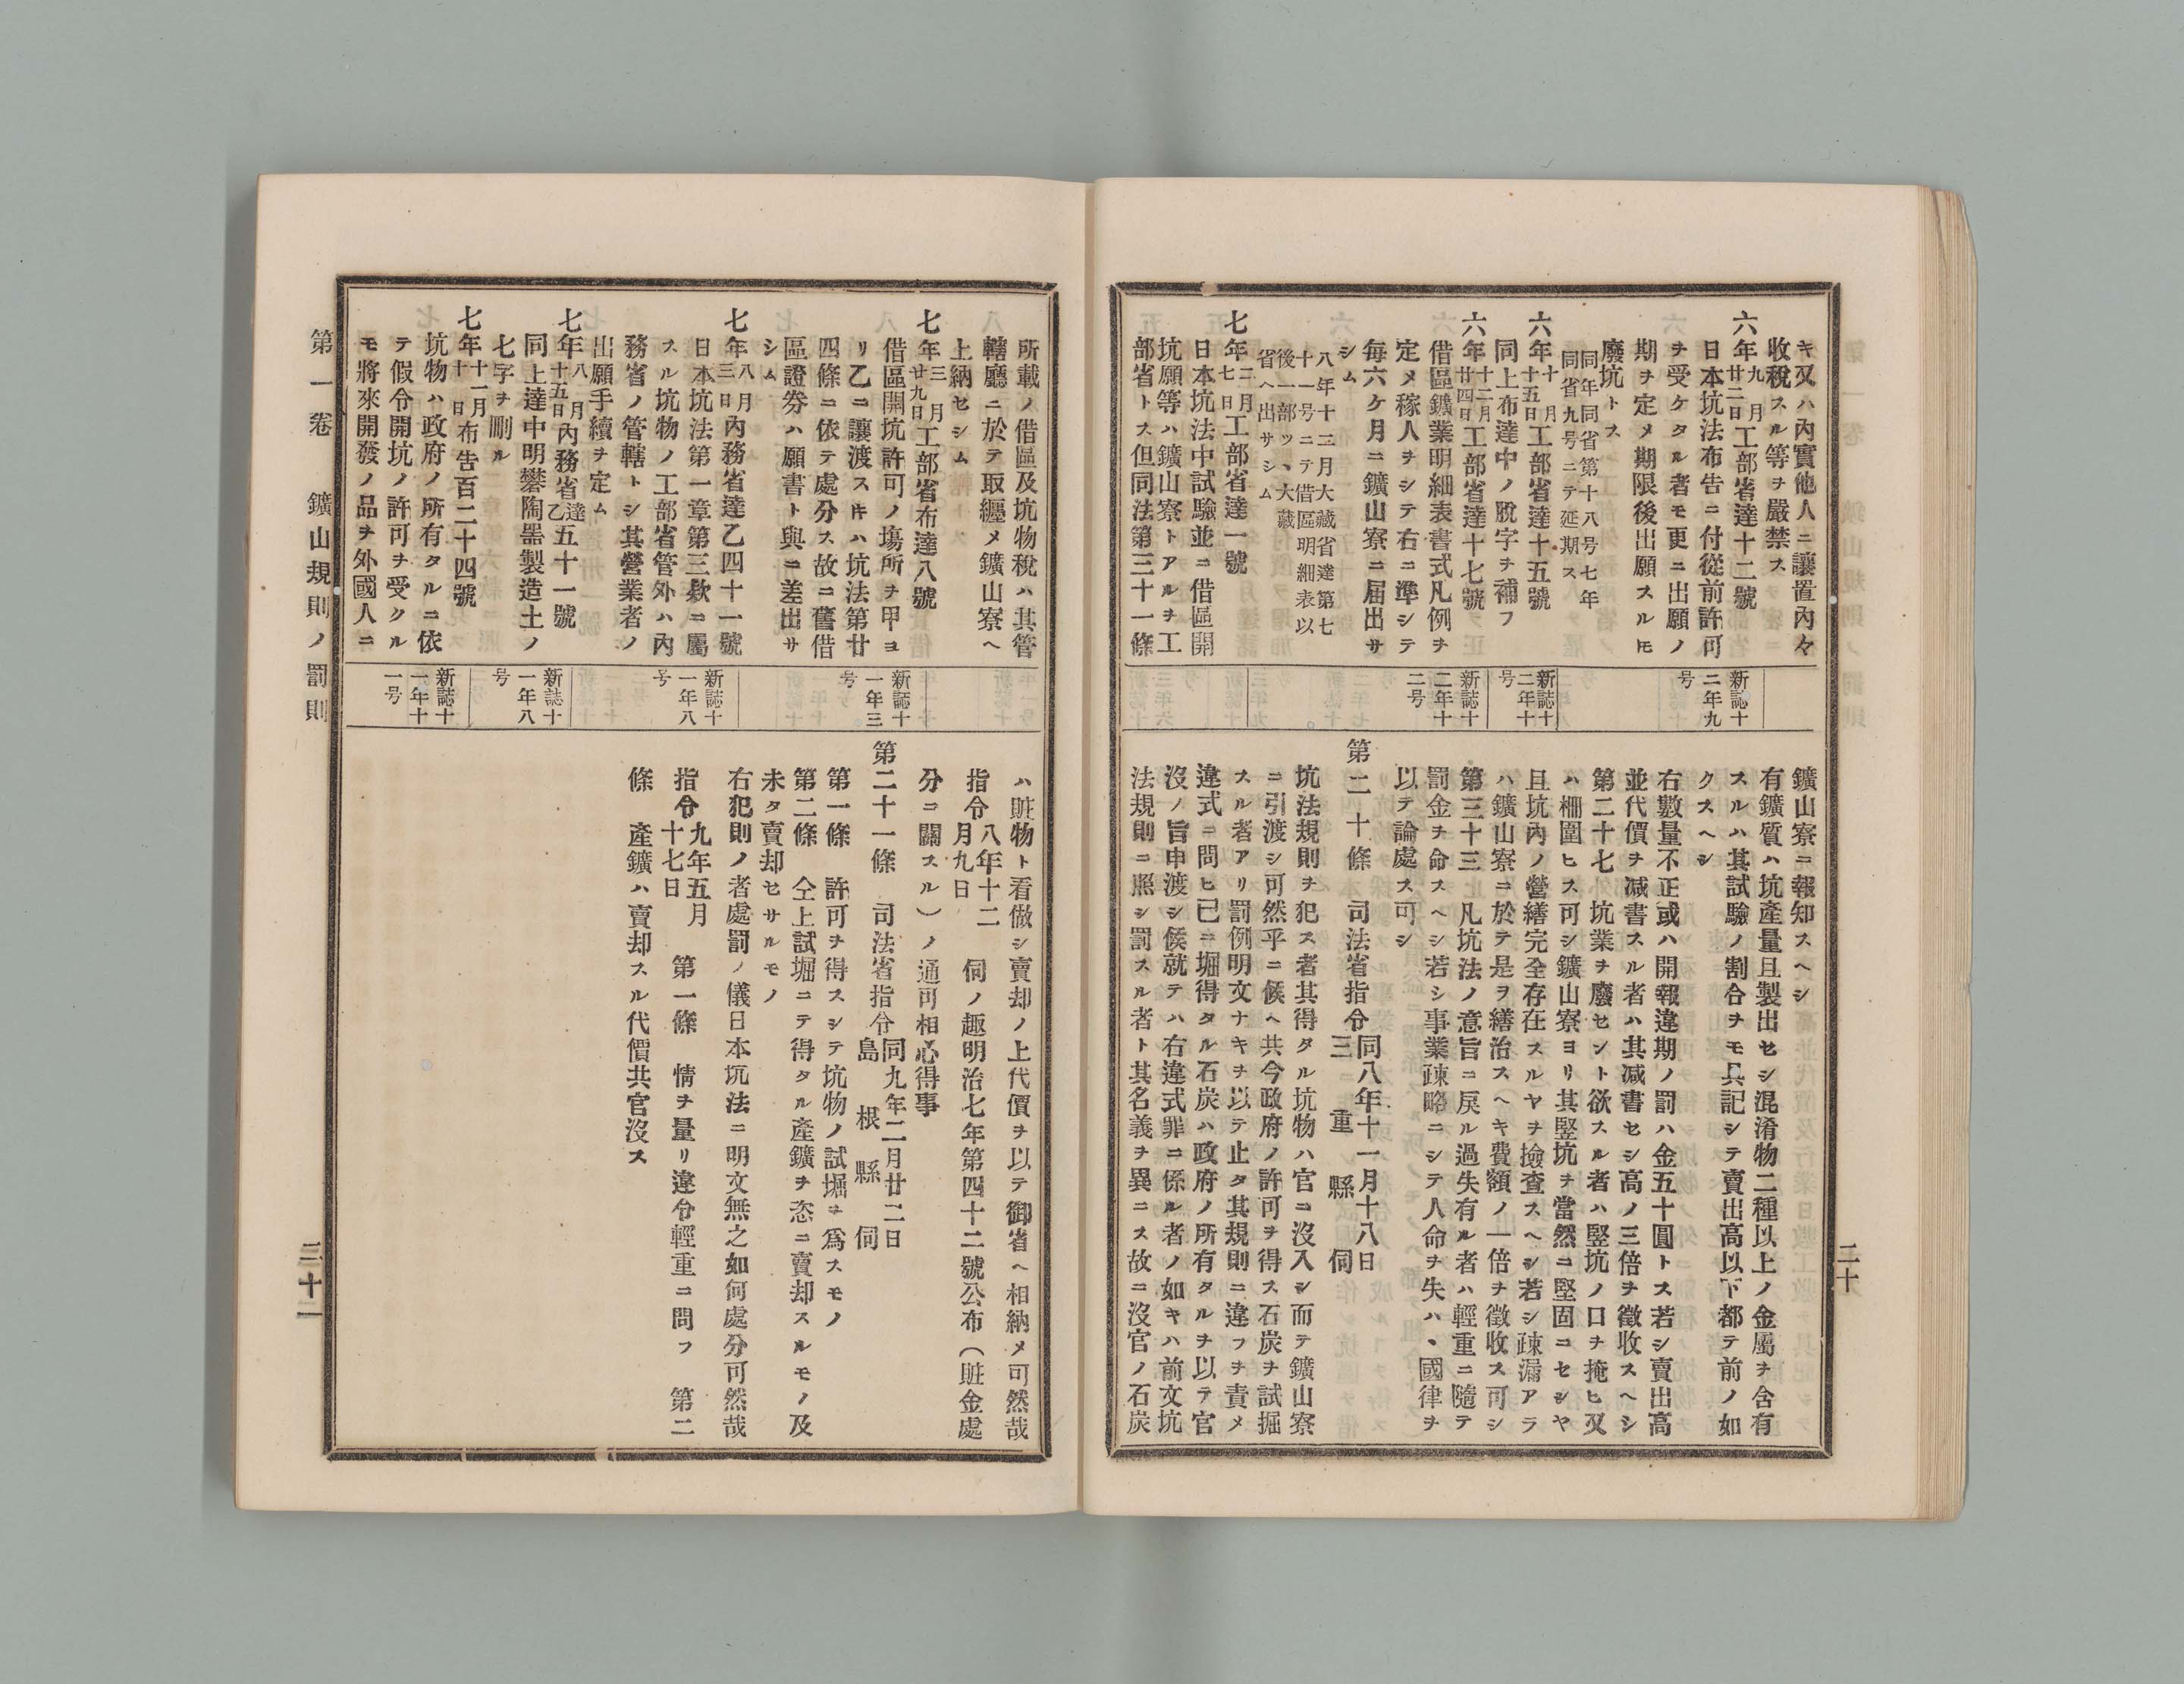 キ又ハ內實他人ニ讓置內々
收稅スル等ヲ嚴禁ス
六年九月廿二日工部省達十二號
日本坑法布告ニ付從前許可
ヲ受ケタル者モ更ニ出願ノ
期ヲ定メ期限後出願スルトモ
廢坑トス
同年同省第十八号七年
同省九号ニテ延期ス
六年十月十五日工部省達十五號
同上布達中ノ脫字ヲ補フ
六年十二月廿四日工部省達十七號
借區鑛業明細表書式凡例ヲ
定メ稼人ヲシテ右ニ準シテ
每六ケ月ニ鑛山寮ニ届出サ
シム
八年十二月大藏省達第七
十一号ニテ借區明細表以
後一部ツヽ大藏
省ヘ出サシム
七年二月七日工部省達一號
日本坑法中試驗並ニ借區開
坑願等ハ鑛山寮トアルヲ工
部省トス但同法第三十一條
新誌十
二年九
号
新誌十
二年十
号
新誌十
二年十
二号
鑛山寮ニ報知スヘシ
有鑛質ハ坑產量且製出セシ混淆物二種以上ノ金屬ヲ含有
スルハ其試驗ノ割合ヲモ具記シテ賣出高以下都テ前ノ如
クスヘシ
右數量不正或ハ開報違期ノ罰ハ金五十圓トス若シ賣出高
並代價ヲ減書スル者ハ其減書セシ高ノ三倍ヲ徵收スヘシ
第二十七 坑業ヲ廢セント欲スル者ハ竪坑ノ口ヲ掩ヒ又
ハ柵圍ヒス可シ鑛山寮ヨリ其竪坑ヲ當然ニ堅固ニセシヤ
且坑內ノ營繕完全存在スルヤヲ撿査スヘシ若シ疎漏アラ
ハ鑛山寮ニ於テ是ヲ繕治スヘキ費額ノ一倍ヲ徵收ス可シ
第三十三 凡坑法ノ意旨ニ戾ル過失有ル者ハ輕重ニ隨テ
罰金ヲ命スヘシ若シ事業疎略ニシテ人命ヲ失ハヽ國律ヲ
以テ論處ス可シ
第二十條 司法省指令 同八年十一月十八日
三重縣伺
坑法規則ヲ犯ス者其得タル坑物ハ官ニ沒入シ而テ鑛山寮
ニ引渡シ可然乎ニ候ヘ共今政府ノ許可ヲ得ス石炭ヲ試掘
スル者アリ罰例明文ナキヲ以テ止タ其規則ニ違フヲ責メ
違式ニ問ヒ已ニ堀得タル石炭ハ政府ノ所有タルヲ以テ官
沒ノ旨申渡シ候就テハ右違式罪ニ係ル者ノ如キハ前文坑
法規則ニ照シ罰スル者ト其名義ヲ異ニス故ニ沒官ノ石炭
二十
所載ノ借區及坑物稅ハ其管
轄廳ニ於テ取纒メ鑛山寮ヘ
上納セシム
七年三月廿九日工部省布達八號
借區開坑許可ノ塲所ヲ甲ヨ
リ乙ニ讓渡スルトキハ坑法第廿
四條ニ依テ處分ス故ニ舊借
區證劵ハ願書ト與ニ差出サ
シム
七年八月三日內務省達乙四十一號
日本坑法第一章第三欵ニ屬
スル坑物ノ工部省管外ハ內
務省ノ管轄トシ其營業者ノ
出願手續ヲ定ム
七年八月十五日內務省達乙五十一號
同上達中明礬陶器製造土ノ
七字ヲ刪ル
七年十一月十日布告百二十四號
坑物ハ政府ノ所有タルニ依
テ假令開坑ノ許可ヲ受クル
モ將來開發ノ品ヲ外國人ニ
新誌十
一年三
号
新誌十
一年八
号
新誌十
一年八
号
新誌十
一年十
一号
ハ賍物ト看做シ賣却ノ上代價ヲ以テ御省ヘ相納メ可然哉
指令 八年十二月九日 伺ノ趣明治七年第四十二號公布(賍金處
分ニ關スル)ノ通可相心得事
第二十一條 司法省指令 同九年二月廿二日
島根縣伺
第一條 許可ヲ得スシテ坑物ノ試堀ヲ爲スモノ
第二條 仝上試堀ニテ得タル產鑛ヲ恣ニ賣却スルモノ及
未タ賣却セサルモノ
右犯則ノ者處罰ノ儀日本坑法ニ明文無之如何處分可然哉
指令 九年五月十七日 第一條 情ヲ量リ違令輕重ニ問フ 第二
條 產鑛ハ賣却スル代價共官沒ス
第一卷 鑛山規則ノ罰則